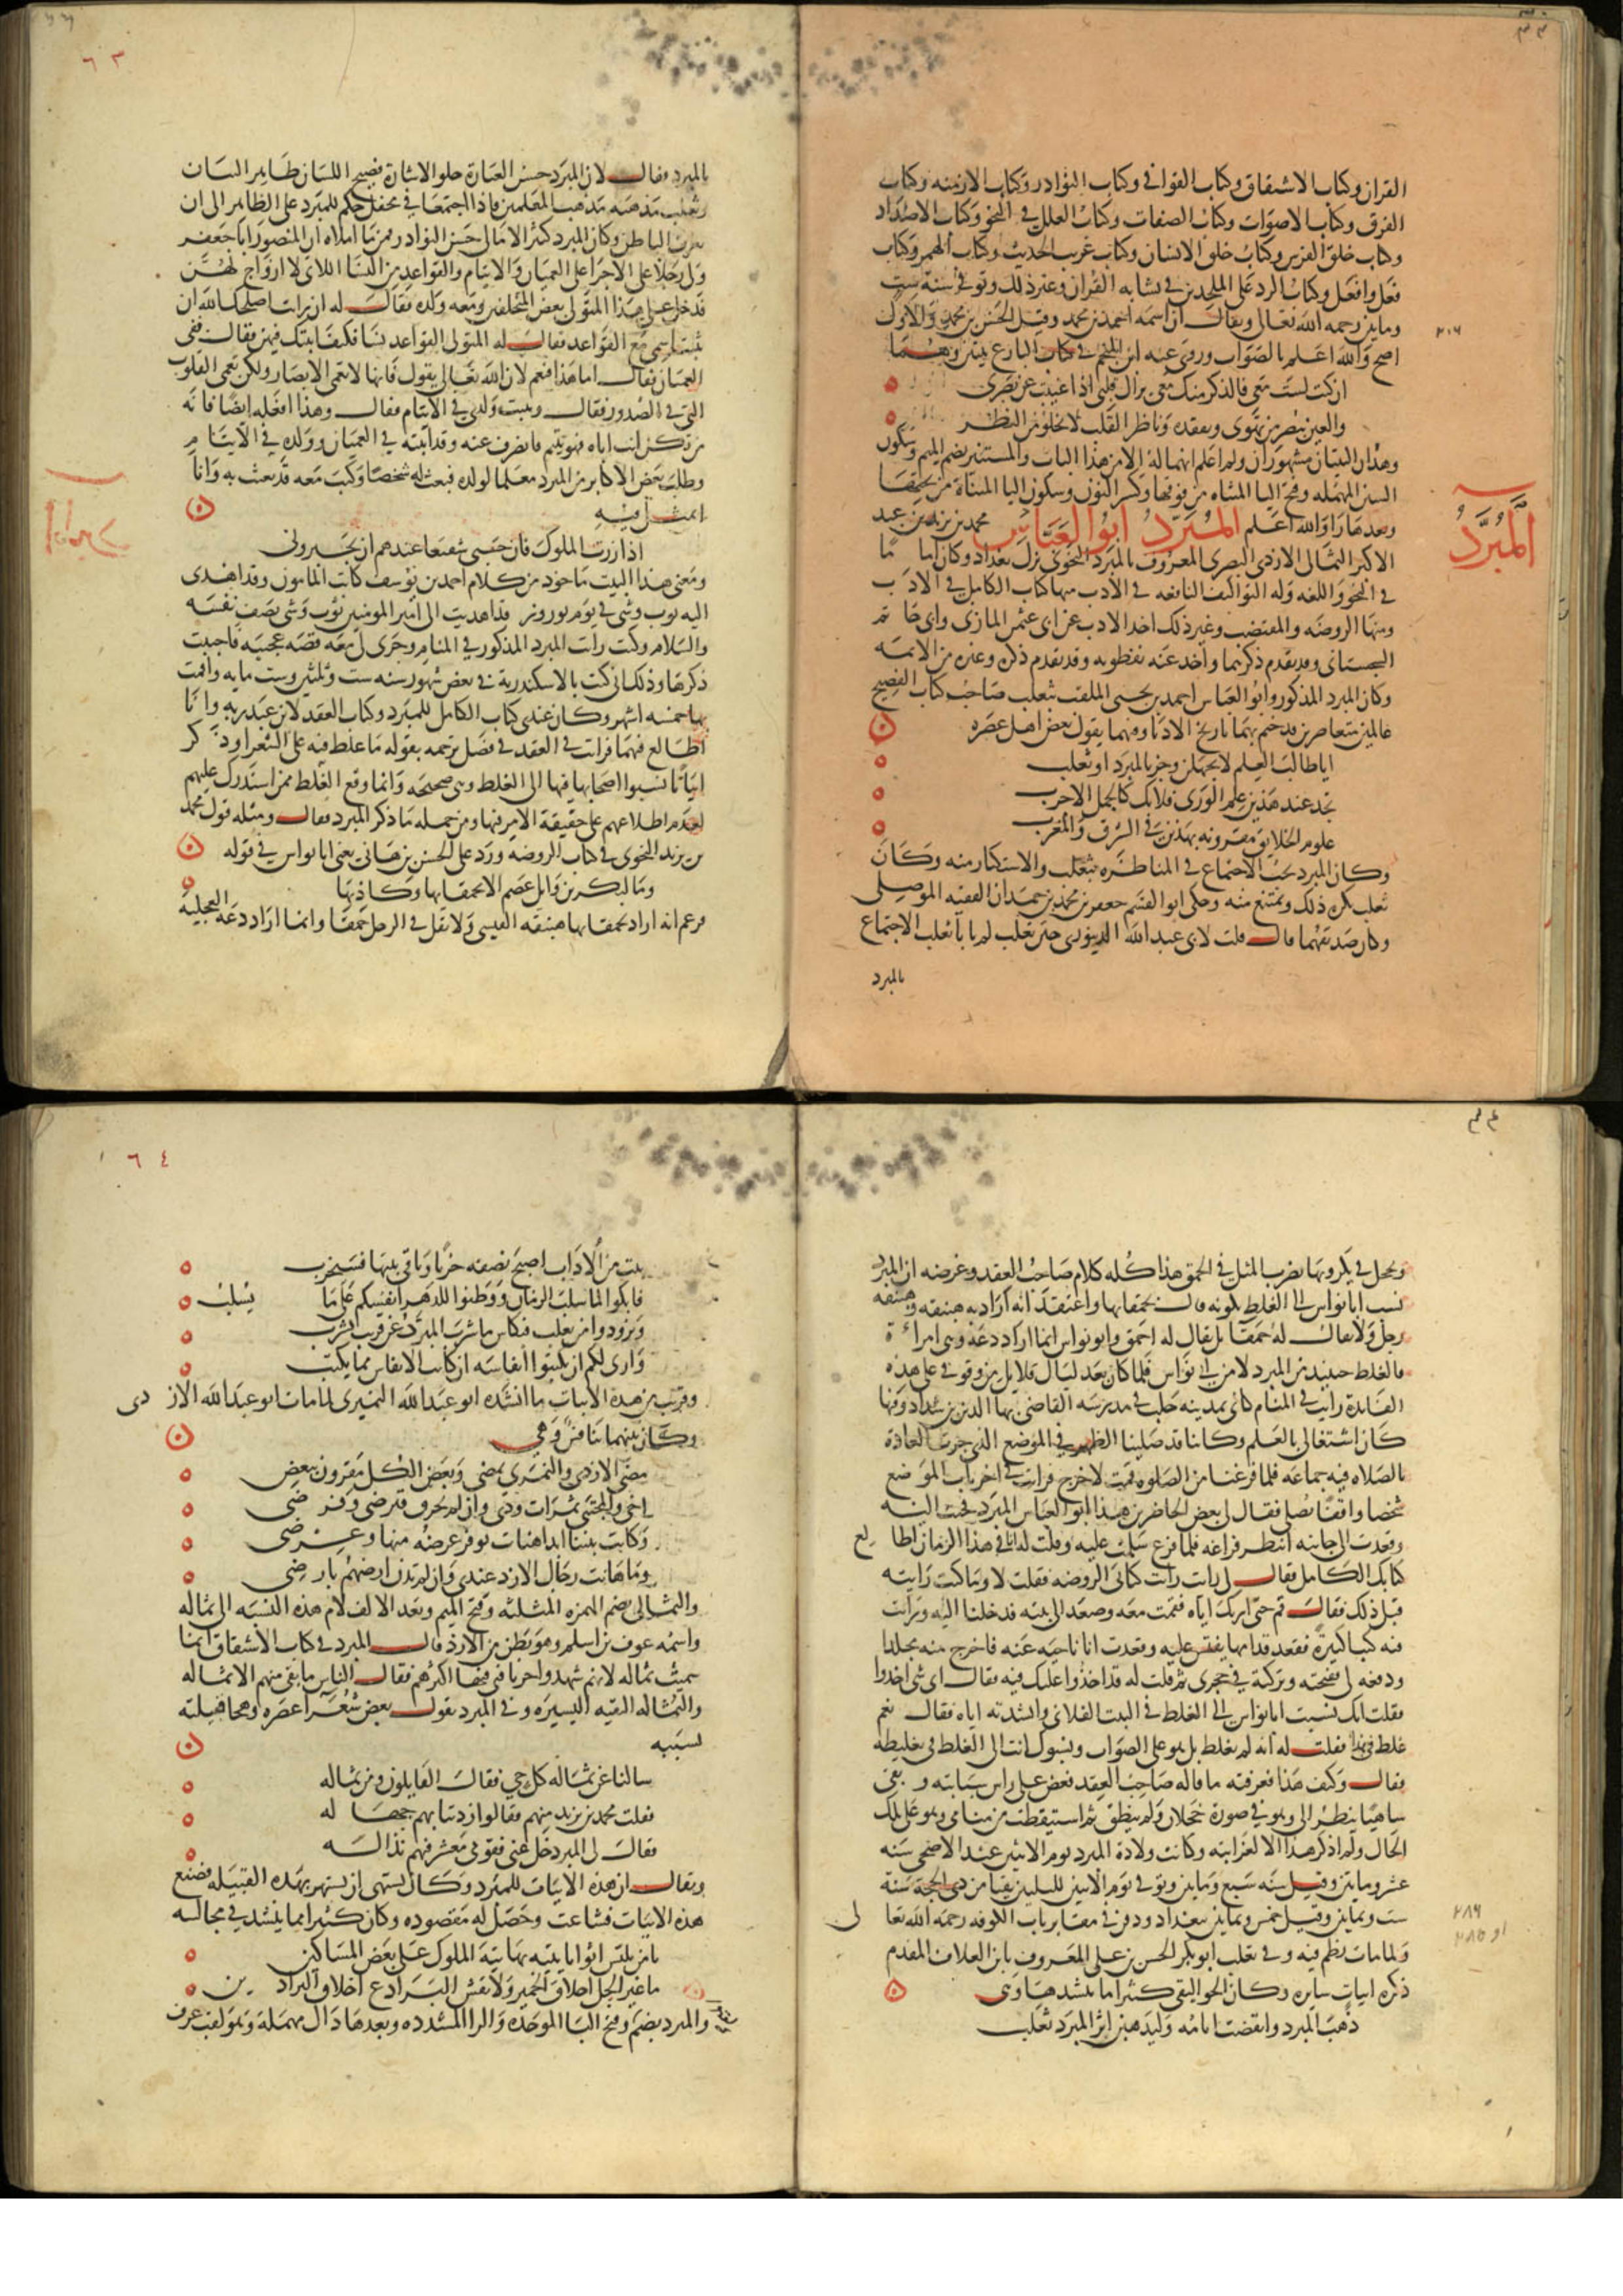 القران وكتاب الاشتقاق وكتاب القوافي وكتاب النوادر وكتاب الازمنه وكتاب
الفرق وكتاب الاصوات وكتاب الصفات وكتاب العلل في النحو وكتاب الاضداد
وكتاب خلق الفرس وكتاب خلق الانسان وكتاب غريب الحديث وكتاب الهمز وكتاب
فعل وافعل وكتاب الرد على الملحدين في تشابه القران وغير ذلك وتوفي سنة ست
ومايتين رحمه الله تعالى ويقال ان اسمه احمد بن محمد وقيل الحسن بن محمد والاول
٢٠٦
اصح والله اعلم بالصواب وروى عنه ابن المنجم في كتاب البارع بيتين وهما
ان كنت لست معي فالذكر منك معي يراك قلبي اذا غيبت عن بصري
والعين تبصر من تهوى وتفقده وناظر القلب لا يخلو من النظر
وهذان البيتان مشهوران ولم اعلم انهما له الا من هذا الباب والمستنير بضم الميم وسكون
السين المهمله وفتح التا المثناه من فوقها وكسر النون وسكون اليا المثناة من تحتها
وبعدها را والله اعلم المبرد ابو العباس محمد بن يزيد بن عبد
المبرد
الاكبر الثمالي الازدي البصري المعروف بالمبرد النحوي نزل بغداد وكان اماما
في النحو واللغه وله التواليف النافعه في الادب منها كتاب الكامل في الادب
ومنها الروضه والمقتضب وغير ذلك اخذ الادب عن ابي عثمن المازني وابي حاتم
السجستاني وقد تقدم ذكرهما واخذ عنه نفطويه وقد تقدم ذكره وغيره من الايمه
وكان المبرد المذكور وابو العباس احمد بن يحيى الملقب ثعلب صاحب كتاب الفصيح
عالمين متعاصرين قد ختم بهما تاريخ الادبا وفيهما يقول بعض اهل عصره
ايا طالب العلم لا تجهلن وعذ بالمبرد او ثعلب
تجد عند هذين علم الورى فلا تك كالجمل الاجرب
علوم الخلايق مقرونه بهذين في الشرق والمغرب
وكان المبرد يحب الاجتماع في المناظره بثعلب والاستكثار منه وكان
ثعلب يكره ذلك ويمتنع منه وحكى ابو القسم جعفر بن محمد بن حمدان الفقيه الموصلي
وكان صديقهما قال قلت لابي عبد الله الدينوري ختن ثعلب لم يابا ثعلب الاجتماع
بالمبرد
٦٣
بالمبرد فقال لان المبرد حسن العبارة حلو الاشارة فصيح اللسان ظاهر البيان
وثعلب مذهبه مذهب المعلمين فاذا اجتمعا في محفل حكم للمبرد على الظاهر الى ان
يعرف الباطن وكان المبرد كثير الامالي حسن النوادر فمن ما املاه ان المنصور ابا جعفر
ولى رجلا على الاجرا على العميان والايتام والقواعد من النسا اللاتي لا ازواج لهن
فدخل على هذا المتولي بعض المتخلفين ومعه ولده فقال له ان رايت اصلحك الله ان
تثبت اسمي مع القواعد فقال له المتولي القواعد نسا فكيف اثبتك فيهن فقال ففي
العميان فقال اما هذا فنعم لان الله تعالى يقول فانها لا تعمى الابصار ولكن تعمى القلوب
التي في الصدور فقال وتثبت ولدي في الايتام فقال وهذا افعله ايضا فانه
من تكن انت اباه فهو يتيم فانصرف عنه وقد اثبته في العميان وولده في الايتام
وطلب بعض الاكابر من المبرد معلما لولده فبعث له شخصا وكتب معه قد بعثت به وانا
اتمثل فيه
اذا زرت الملوك فان حسبي شفيعا عندهم ان يخبروني
ومعنى هذا البيت ماخوذ من كلام احمد بن يوسف كاتب المامون وقد اهدى
اليه ثوب وشي في يوم نوروز قد اهديت الى امير المومنين ثوب وشي يصف نفسه
والسلام وكنت رايت المبرد المذكور في المنام وجرى لي معه قصه عجيبه فاحببت
ذكرها وذلك اني كنت بالاسكندرية في بعض شهور سنه ست وثلثين وست مايه واقمت
بها خمسه اشهر وكان عندي كتاب الكامل للمبرد وكتاب العقد لابن عبد ربه وانا
اطالع فيهما فرايت في العقد في فصل ترجمه بقوله ما غلط فيه على الشعرا وذكر
ابياتا نسبوا اصحابها فيها الى الغلط وهي صحيحه وانما وقع الغلط ممن استدرك عليهم
لعدم اطلاعهم على حقيقة الامر فيها ومن جمله ما ذكر المبرد فقال ومثله قول محمد
بن يزيد النحوي في كتاب الروضه ورد على الحسن بن هاني يعني ابا نواس في قوله
وما لبكر بن وايل عصم الا بحمقايها وكاذبها
فزعم انه اراد بحمقايها هبنقه القيسي ولا يقال في الرجل حمقا وانما اراد دغه العجلية
وعجل في بكر وبها يضرب المثل في الحمق هذا كله كلام صاحب العقد وغرضه ان المبرد
نسب ابا نواس الى الغلط بكونه قال بحمقايها واعتقد انه اراد به هبنقه وهبنقه
رجل ولا يقال له حمقا بل يقال له احمق وابو نواس انما اراد دغه وهي امراة
فالغلط حينيذ من المبرد لا من ابي نواس فلما كان بعد ليال قلايل من وقوفي على هذه
الفايدة رايت في المنام كاني بمدينه حلب في مدرسه القاضي بها الدين بن شداد وفيها
كان اشتغالي بالعلم وكاننا قد صلينا الظهر في الموضع الذي جرت العادة
بالصلاه فيه جماعه فلما فرغنا من الصلوه قمت لاخرج فرايت في اخريات الموضع
شخصا واقفا يصلي فقال لي بعض الحاضرين هذا ابو العباس المبرد فجيت اليه
وقعدت الى جانبه انتظر فراغه فلما فرغ سلمت عليه وقلت له انا في هذا الزمان اطالع
كتابك الكامل فقال لي رايت كتابي الروضه فقلت لا وما كنت رايته
قبل ذلك فقال قم حتى اريك اياه فقمت معه وصعد الى بيته فدخلنا اليه ورايت
فيه كتبا كثيرة فقعد قدامها يفتش عليه وقعدت انا ناحيه عنه فاخرج منه مجلدا
ودفعه لي ففتحته وتركته في حجري ثم قلت له قد اخذوا عليك فيه فقال اي شي اخذوا
فقلت انك نسبت ابا نواس الى الغلط في البيت الفلاني وانشدته اياه فقال نعم
غلط في هذا فقلت له انه لم يغلط بل هو على الصواب ونسبوك انت الى الغلط في تغليطه
فقال وكيف هذا فعرفته ما قاله صاحب العقد فعض على راس سبابته وبقي
ساهيا ينظر الي وهو في صورة خجلان ولم ينطق ثم استيقظت من منامي وهو على تلك
الحال ولم اذكر هذا الا لغرابته وكانت ولادة المبرد يوم الاثنين عيد الاضحى سنه
عشر ومايتين وقيل سنه سبع ومايتين وتوفي يوم الاثنين لليلتين بقيتا من ذي الحجة سنة
ست وثمانين وقيل خمس وثمانين ببغداد ودفن في مقابر باب الكوفه رحمه الله تعالى
٢٨٦
او ٢٨٥
ولما مات نظم فيه وفي ثعلب ابو بكر الحسن بن علي المعروف بابن العلاف المقدم
ذكره ابيات سايره وكان الجواليقي كثيرا ما ينشدها وهي
ذهب المبرد وانقضت ايامه وليذهبن اثر المبرد ثعلب
٦٤
بيت من الاداب اصبح نصفه خربا وباقي بيتها فسيخرب
فابكوا لما سلب الزمان ووطنوا للدهر انفسكم على ما يسلب
وتزودوا من ثعلب فبكاس ما شرب المبرد عن قريب يشرب
وارى لكم ان تكتبوا انفاسه ان كانت الانفاس مما يكتب
وقريب من هذه الابيات ما انشده ابو عبد الله النميري لما مات ابو عبد الله الازدي
وكان بينهما تنافس وهي
مضى الازدي والنمري يمضي وبعض الكل مقرون ببعض
اخي والمجتني ثمرات ودي وان لم يجزني قرضي وفرضي
وكانت بيننا ابدا هنات توفر عرضه منها وعرضي
وما هانت رجال الازد عندي وان لم تدن ارضهم بارضي
والثمالي بضم الهمزه المثلثه وفتح الميم وبعد الالف لام هذه النسبه الى ثماله
واسمه عوف بن اسلم وهو بطن من الازد قال المبرد في كتاب الاشتقاق انما
سميت ثماله لانهم شهدوا حربا فني فيها اكثرهم فقال الناس ما بقي منهم الا ثماله
والثماله البقيه اليسيره وفي المبرد يقول بعض شعرا عصره وهجا قبيلته
بسببه
سالنا عن ثماله كل حي فقال القايلون ومن ثماله
فقلت محمد بن يزيد منهم فقالوا زدتنا بهم جهاله
فقال لي المبرد خل عني فقومي معشر فيهم نذاله
ويقال ان هذه الابيات للمبرد وكان يشتهي ان يشتهر بهذه القبيله فصنع
هذه الابيات فشاعت وحصل له مقصوده وكان كثيرا ما ينشد في مجالسه
يا من تلبس اثوابا يتيه بها تيه الملوك على بعض المساكين
ما غير الجل اخلاق الحمير ولا نقش البرادع اخلاق البراذين
والمبرد بضم وفتح البا الموحده والرا المشدده وبعدها دال مهملة وهو لقب عرف